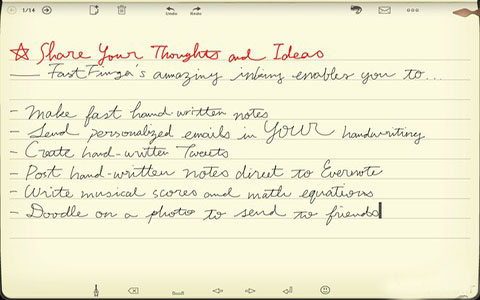 1/14
Undo Redo
☆ Share Your Thoughts and Ideas
— FastFinga's amazing inking enables you to...
- Make fast hand-written notes
- Send personalized emails in YOUR handwriting
- Create hand-written Tweets
- Post hand-written notes direct to Evernote
- Write musical scores and math equations
- Doodle on a photo to send to friends